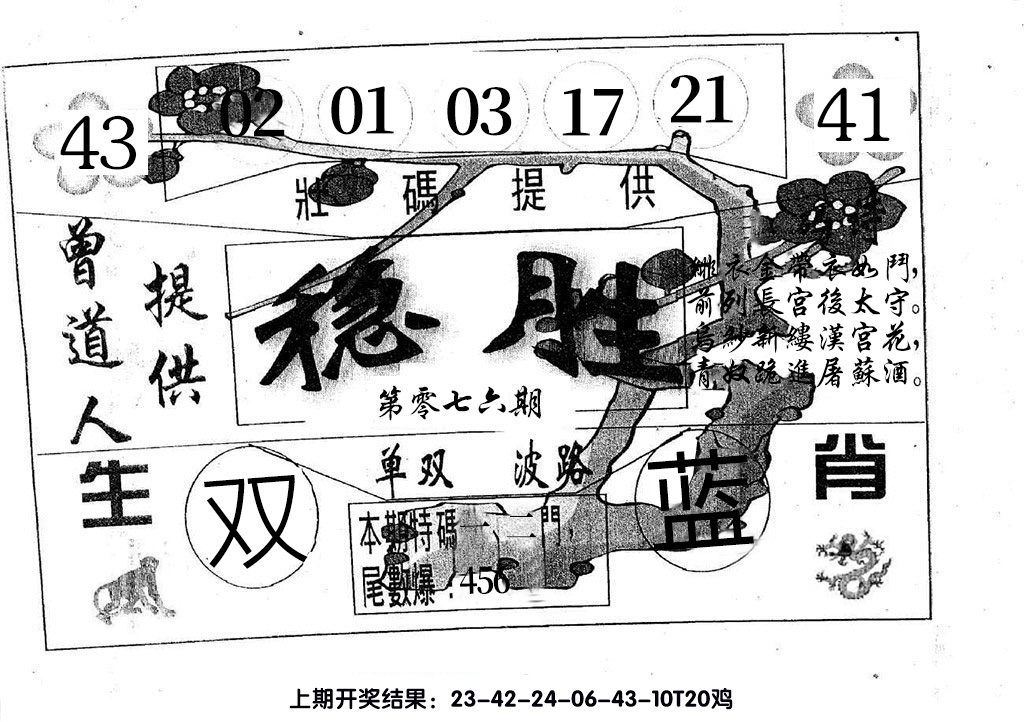 43 02 01 03 17 21 41
壯碼提供
曾道人
提供
稳胜
第零七六期
緋衣金帶衣如鬥，
前列長宮後太守。
烏紗新縷漢宮花，
青奴跪進屠蘇酒。
生肖
单双 波路
双
蓝
本期特碼一、二門，
尾數爆：456
上期开奖结果：23-42-24-06-43-10T20鸡